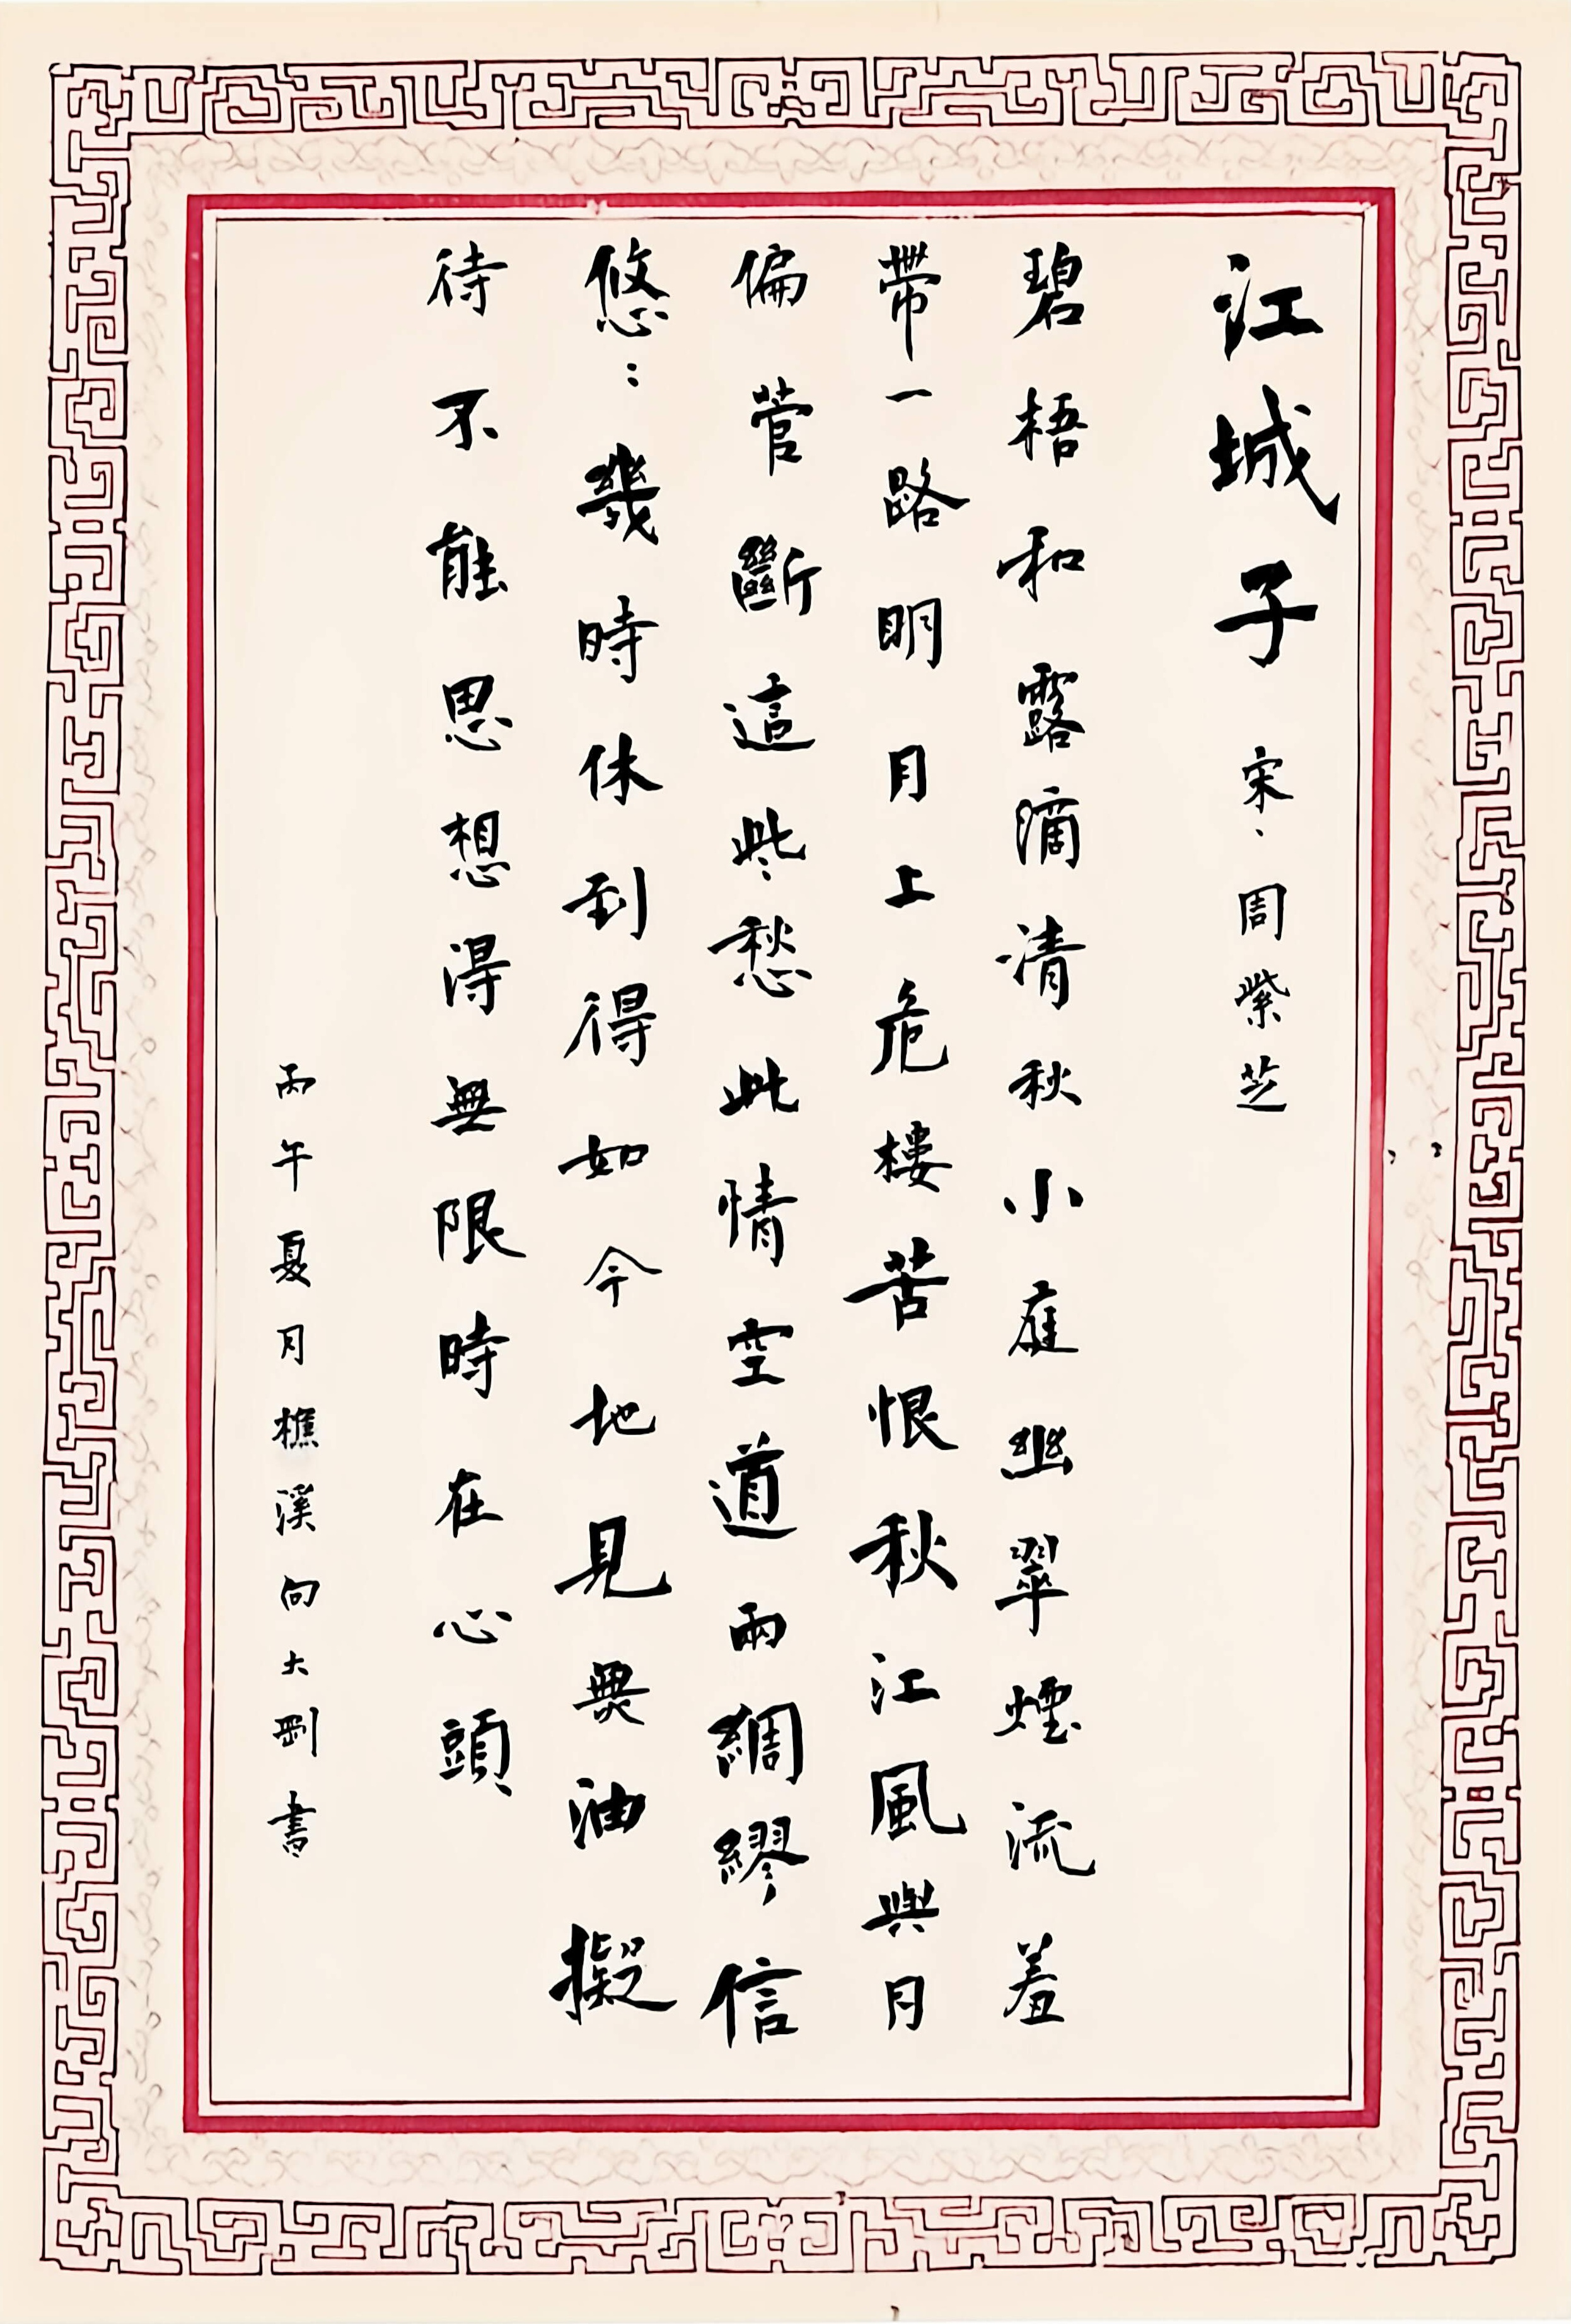 江城子 宋、周紫芝
碧梧和露滴清秋小庭幽翠煙流羞
帶一路明月月上危樓苦恨秋江風與月
偏管斷這些愁此情空道兩綢繆信
悠：幾時休到得如今地見無油擬
待不能思想得無限時時在心頭
丙午夏月樵溪向大剛書